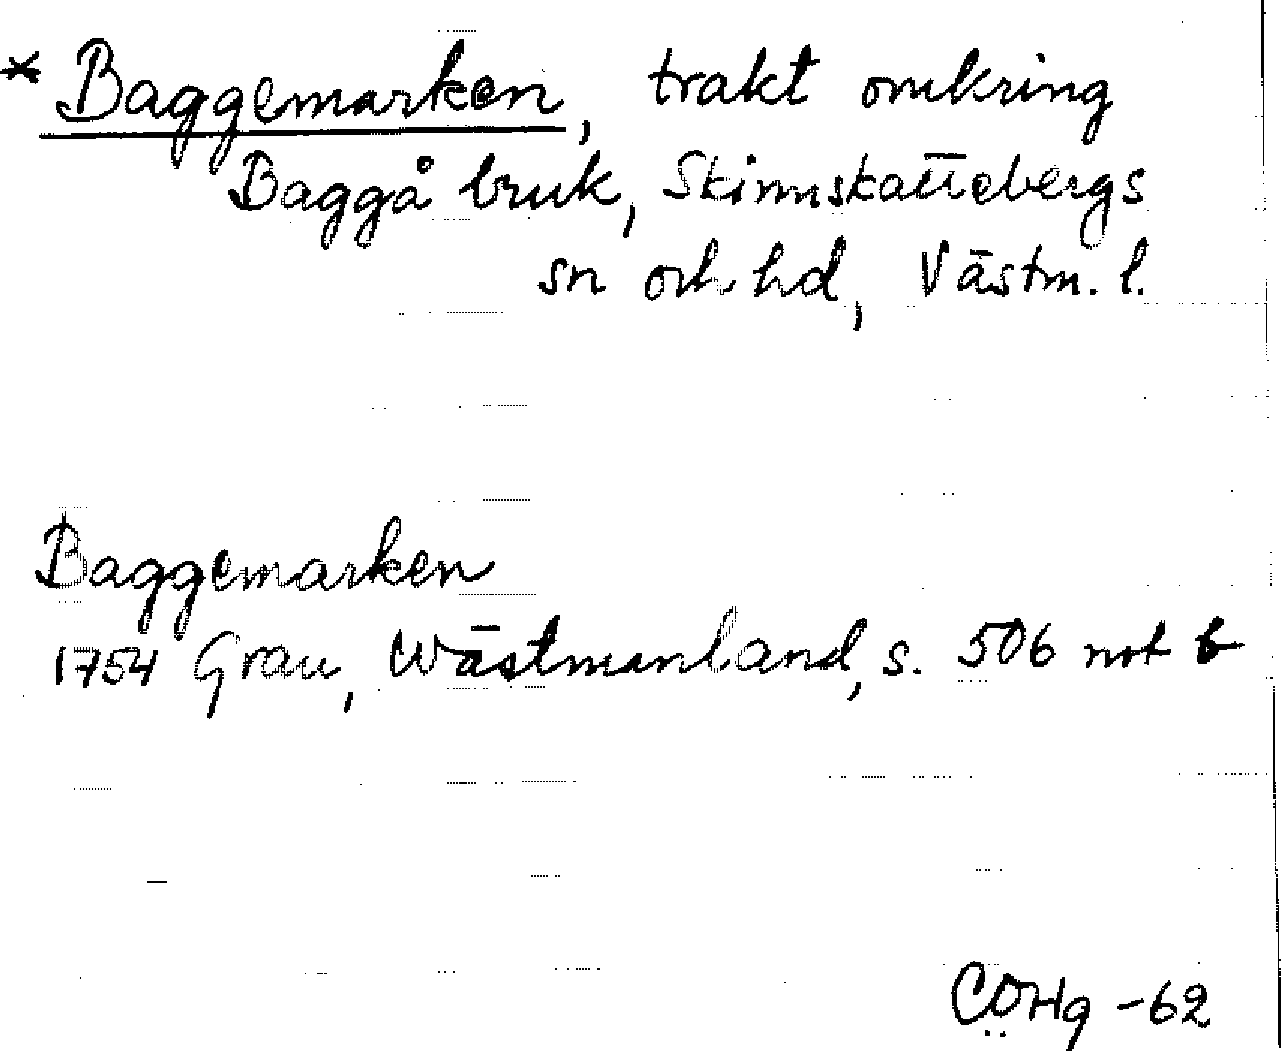 * Baggemarken, trakt omkring
Baggå bruk, Skinnskattebergs
sn och hd, Västm. l.
Baggemarken
1754 Grau, Wästmanland, s. 506 not b
CÖHg -62